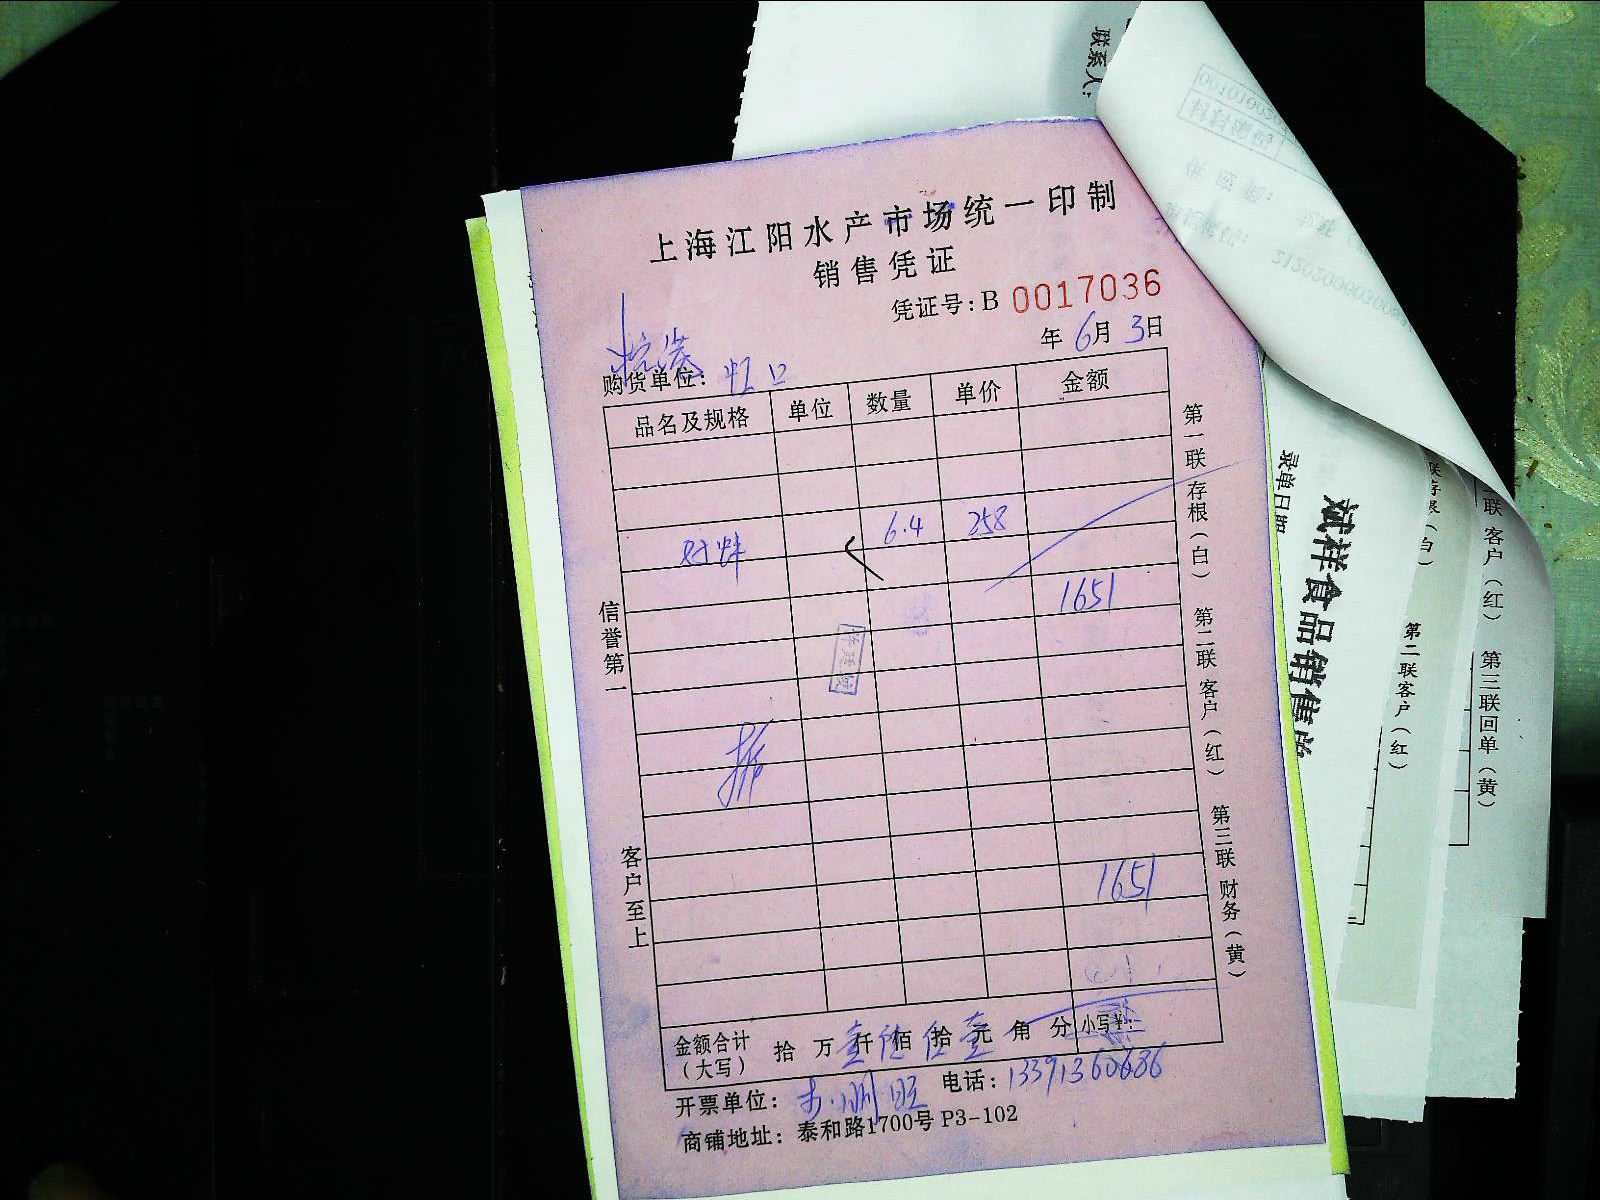 上海江阳水产市场统一印制
销售凭证
凭证号:B 0017036
年 6月 3日
购货单位: 虹口
品名及规格 单位 数量 单价 金额
6.4 258
1651
1651
金额合计(大写) 拾 万 壹 仟 陆 佰 伍 拾 壹 元 角 分 小写¥:
开票单位:
电话: 13391360686
商铺地址: 泰和路1700号 P3-102
信誉第一
客户至上
第一联 存根(白) 第二联 客户(红) 第三联 财务(黄)
联系人:
录单日期
斌祥食品销售单
第二联客户(红)
联客户(红) 第三联回单(黄)